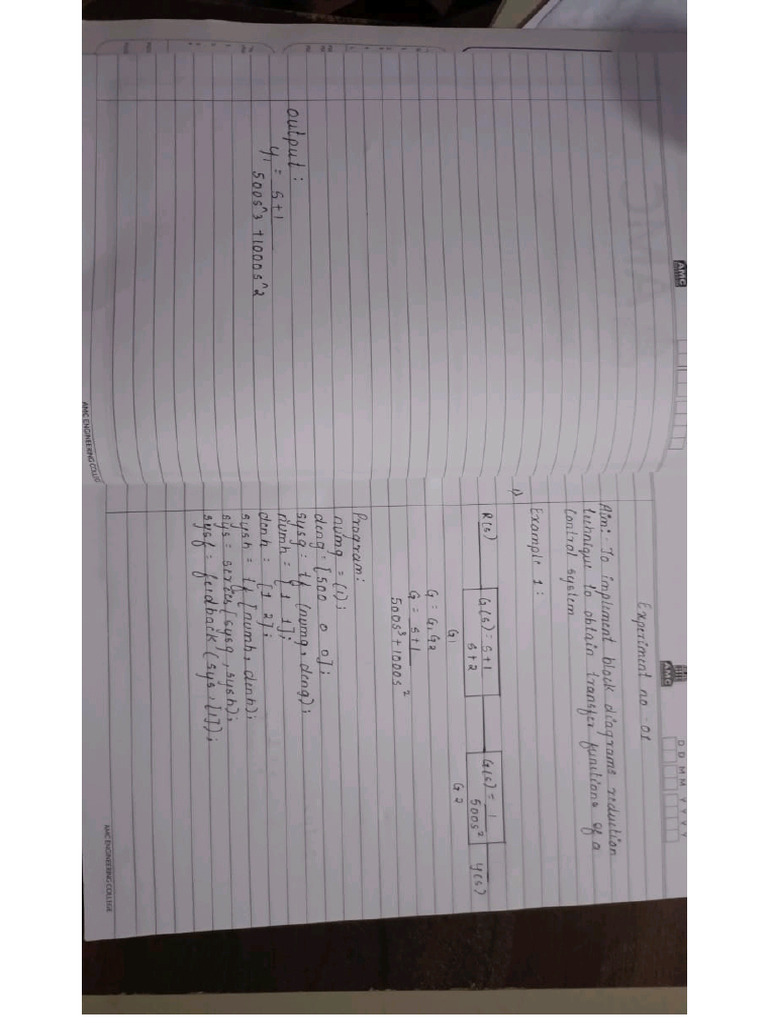 AMC
output:
y1 = s+1
500s^3 +1000s^2
AMC ENGINEERING COLLEGE
AMC
D D M M Y Y Y Y
Experiment no -01
Aim:- To impliment block diagrams reduction
technique to obtain transfer functions of a
control system
1) Example 1:
R(s) G(s) = s+1 G(s) = 1 Y(s)
s+2 500s²
G1 G2
G = G1G2
G = s+1
500s³+1000s²
Program:
numg = [1];
deng = [500 0 0];
sysg = tf (numg, deng);
numh = [1 1];
denh = [1 2];
sysh = tf [numh, denh);
sys = series[sysg, sysh);
sysf = feedback (sys, [1]);
AMC ENGINEERING COLLEGE